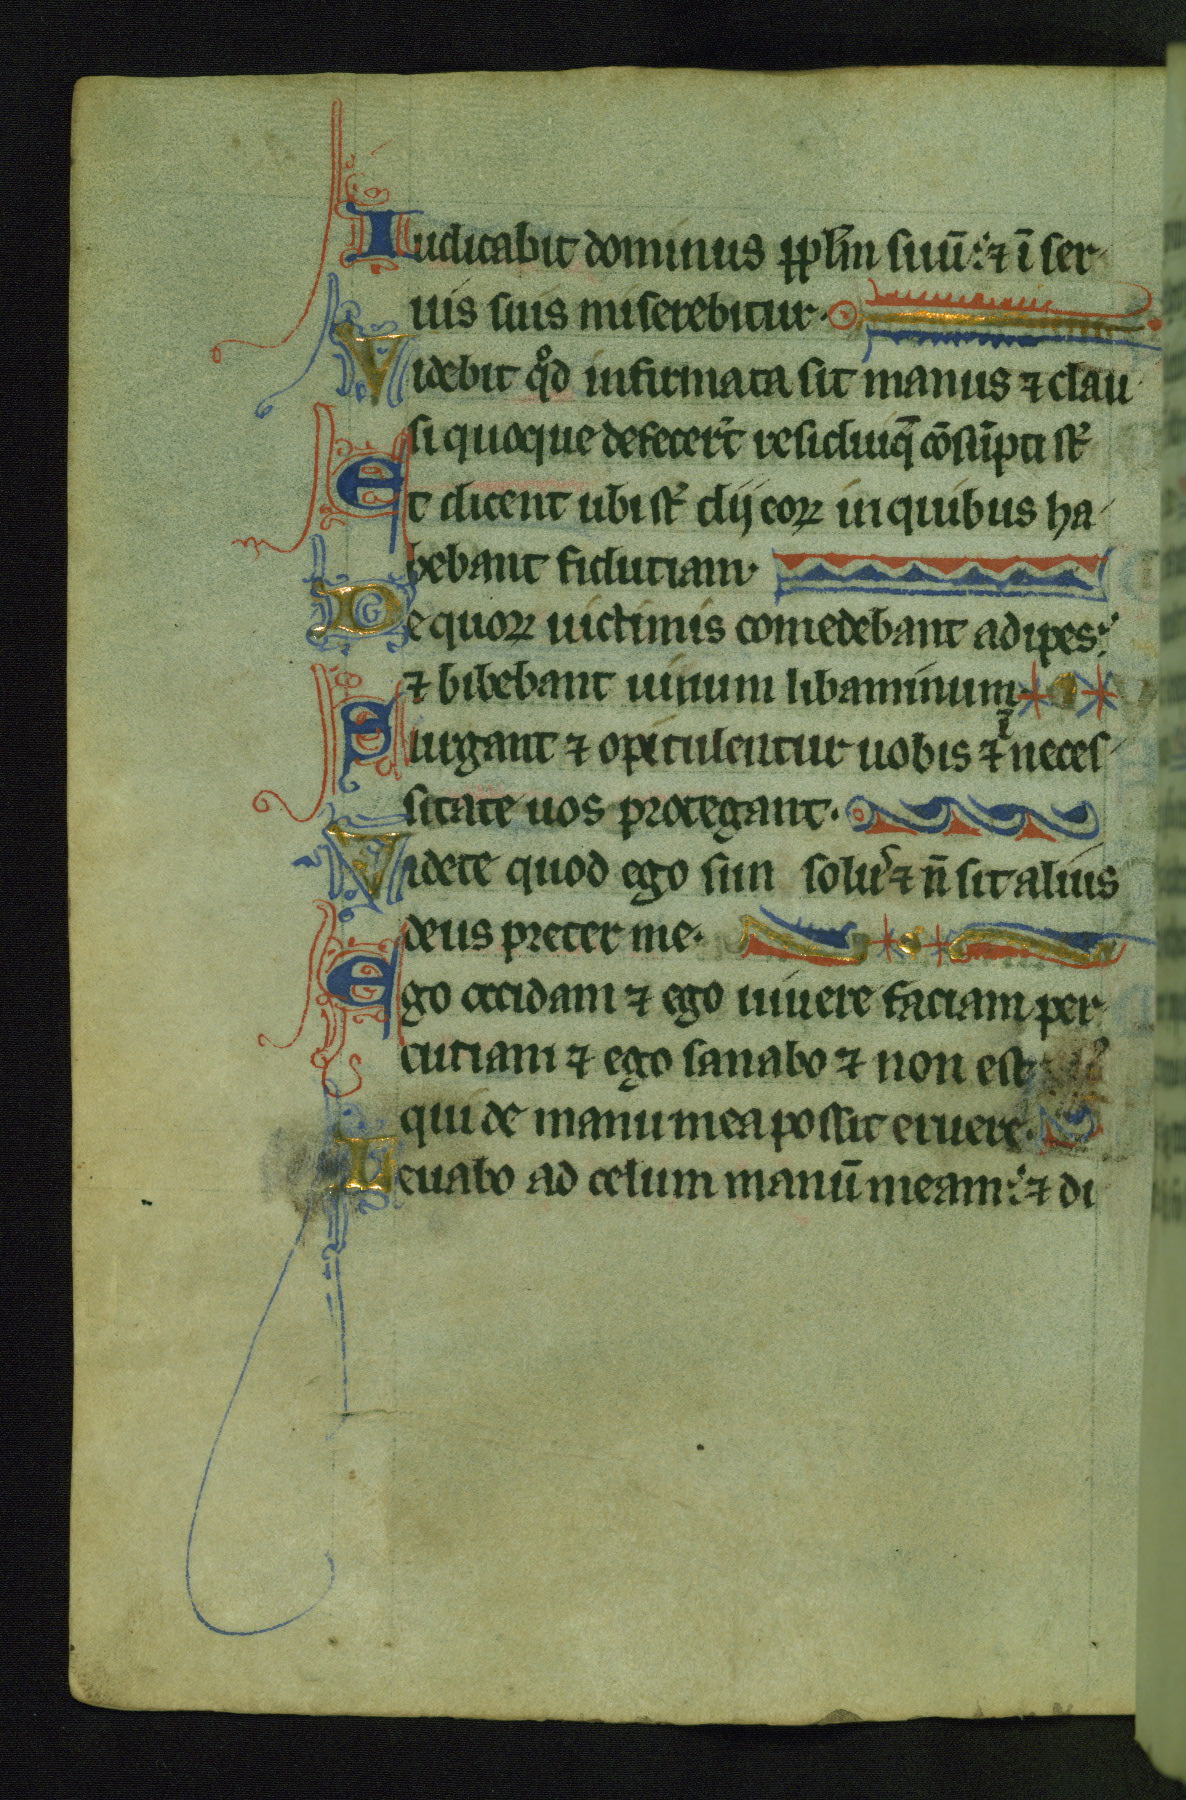 Iudicabit dominus pplm̄ suū: ⁊ ī ser
uis suis miserebitur.
Videbit qͦd infirmata sit manus ⁊ clau
si quoque defecert̄ residuiq̄ cōsūpti st̄
Et dicent ubi st̄ dij eoꝝ in quibus ha
bebant fiduciam.
De quoꝝ uictimis comedebant adipes:
⁊ bibebant uinum libaminum.
Surgant ⁊ opitulentur uobis ⁊ ī neces
sitate uos protegant.
Videte quod ego sim solus ⁊ n̄ sit alius
deus preter me.
Ego occidam ⁊ ego uiuere faciam per
cutiam ⁊ ego sanabo ⁊ non est
qui de manu mea possit eruere.
Leuabo ad celum manū meam: ⁊ di